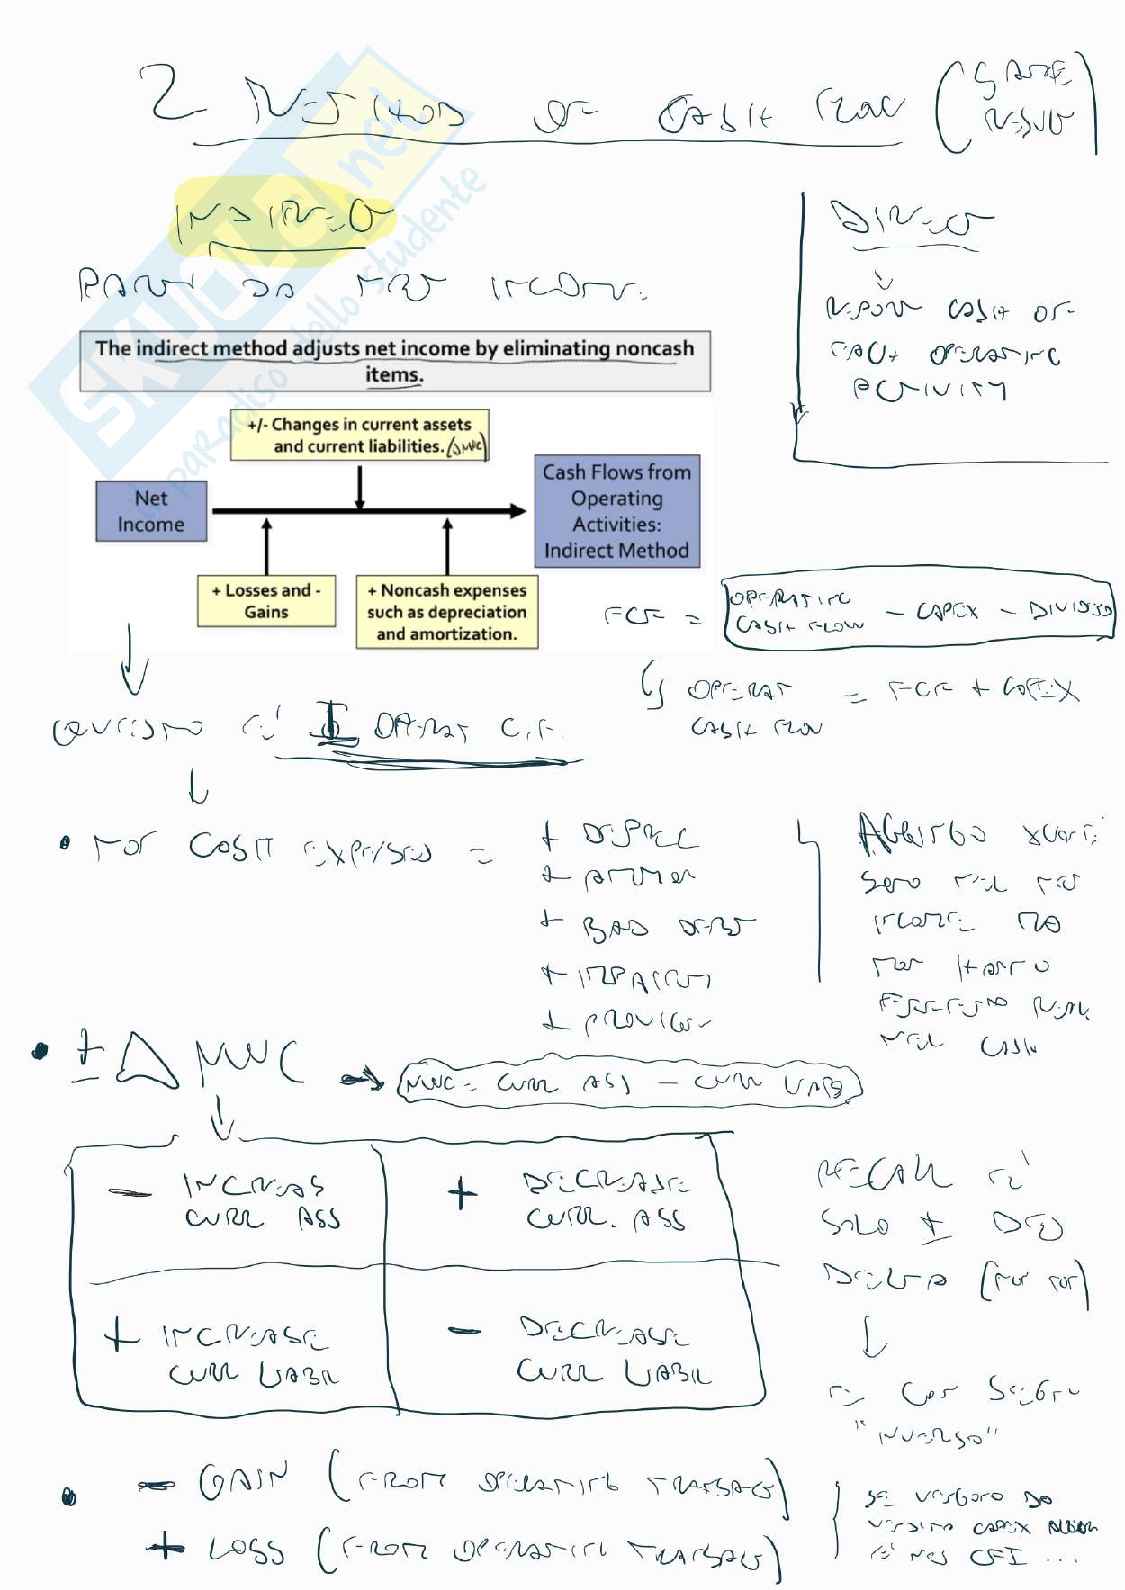 2 METHOD OF CASH FLOW (SAME RESULT)
INDIRECT
PARTI DA NET INCOME.
DIRECT
REPORT CASH OF
EACH OPERATING
ACTIVITY
The indirect method adjusts net income by eliminating noncash
items.
+/- Changes in current assets
and current liabilities. (ΔNWC)
Net
Income
Cash Flows from
Operating
Activities:
Indirect Method
+ Losses and -
Gains
+ Noncash expenses
such as depreciation
and amortization.
FCF = OPERATING CASH FLOW - CAPEX - DIVIDEND
OPERAT CASH FLOW = FCF + CAPEX
OPERAT C.F.
• NON CASH EXPENSES =
+ DEPREC
+ AMMOR
+ BAD DEBT
+ IMPAIRMENT
+ PROVISION
AGGIUNGO
SONO NEL NET
INCOME MA
NON HANNO
NEL CASH
• ± Δ NWC → NWC = CURR ASS - CURR LIAB
- INCREAS
CURR ASS
+ DECREASE
CURR. ASS
+ INCREASE
CURR LIABIL
- DECREASE
CURR LIABIL
RECALL
SOLO ± DEL
DELTA
CON SEGNO
"INVERSO"
• - GAIN (FROM OPERATING TRANSACT)
+ LOSS (FROM OPERATING TRANSACT)
SE VENGONO DA
VENDITA CAPEX
NEL CFI ...
SKUOLA.net
il paradiso dello studente